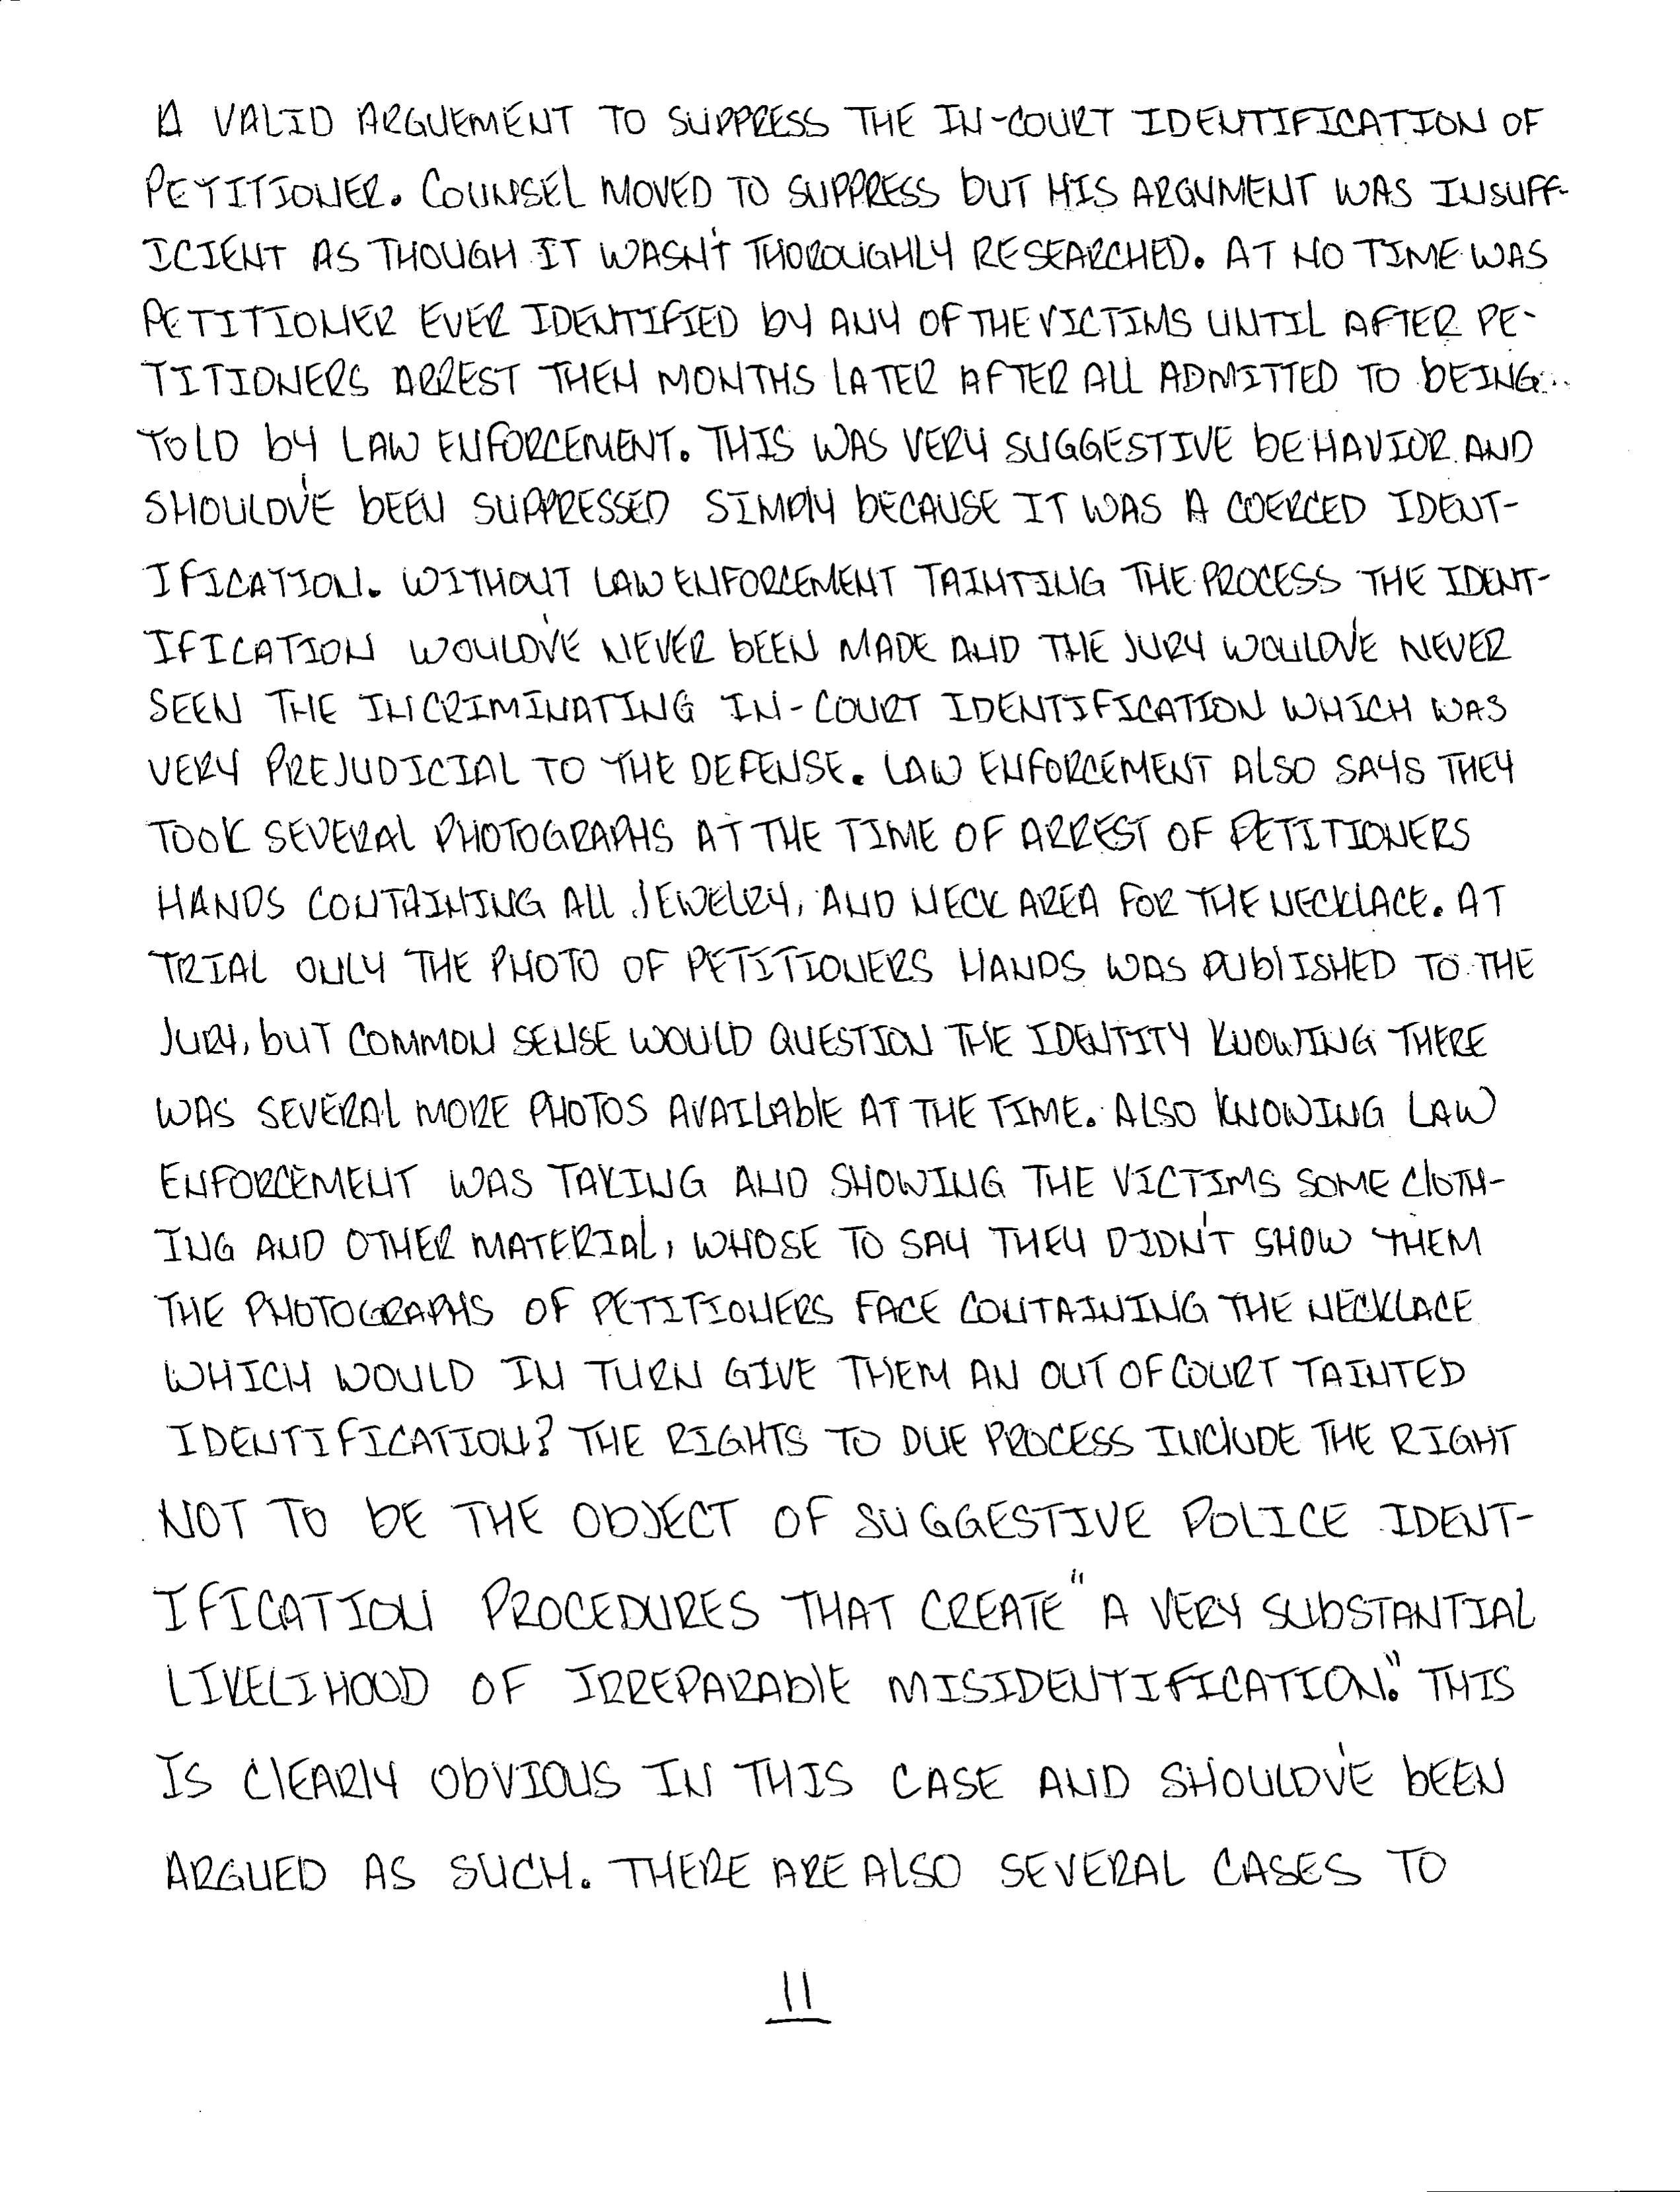 A VALID ARGUEMENT TO SUPPRESS THE IN-COURT IDENTIFICATION OF
PETITIONER. COUNSEL MOVED TO SUPPRESS bUT HIS ARGUMENT WAS INSUFF-
ICIENT AS THOUGH IT WASN'T THOROUGHLY RESEARCHED. AT NO TIME WAS
PETITIONER EVER IDENTIFIED bY ANY OF THE VICTIMS UNTIL AFTER PE-
TITIONERS ARREST THEN MONTHS LATER AFTER All ADMITTED TO bEING
TOLD bY LAW ENFORCEMENT. THIS WAS VERY SUGGESTIVE bEHAVIOR AND
SHOULD'VE bEEN SUPPRESSED SIMPlY bECAUSE IT WAS A COERCED IDENT-
IFICATION. WITHOUT LAW ENFORCEMENT TAINTING THE PROCESS THE IDENT-
IFICATION WOULD'VE NEVER bEEN MADE AND THE JURY WOULD'VE NEVER
SEEN THE INCRIMINATING IN-COURT IDENTIFICATION WHICH WAS
VERY PREJUDICIAL TO THE DEFENSE. LAW ENFORCEMENT AlSO SAYS THEY
TOOK SEVERAl PHOTOGRAPHS AT THE TIME OF ARREST OF PETITIONERS
HANDS CONTAINING All JEWElRY, AND NECK AREA FOR THE NECKlACE. AT
TRIAL ONLY THE PHOTO OF PETITIONERS HANDS WAS PUblISHED TO THE
JURY, bUT COMMON SENSE WOULD QUESTION THE IDENTITY KNOWING THERE
WAS SEVERAl MORE PHOTOS AVAILAblE AT THE TIME. AlSO KNOWING LAW
ENFORCEMENT WAS TAKING AND SHOWING THE VICTIMS SOME ClOTH-
ING AND OTHER MATERIAL, WHOSE TO SAY THEY DIDN'T SHOW THEM
THE PHOTOGRAPHS OF PETITIONERS FACE CONTAINING THE NECKLACE
WHICH WOULD IN TURN GIVE THEM AN OUT OF COURT TAINTED
IDENTIFICATION? THE RIGHTS TO DUE PROCESS INClUDE THE RIGHT
NOT TO bE THE ObJECT OF SUGGESTIVE POLICE IDENT-
IFICATION PROCEDURES THAT CREATE "A VERY SUbSTANTIAL
LIKELIHOOD OF IRREPARAblE MISIDENTIFICATION." THIS
IS ClEARlY ObVIOUS IN THIS CASE AND SHOULD'VE bEEN
ARGUED AS SUCH. THERE ARE AlSO SEVERAL CASES TO
11